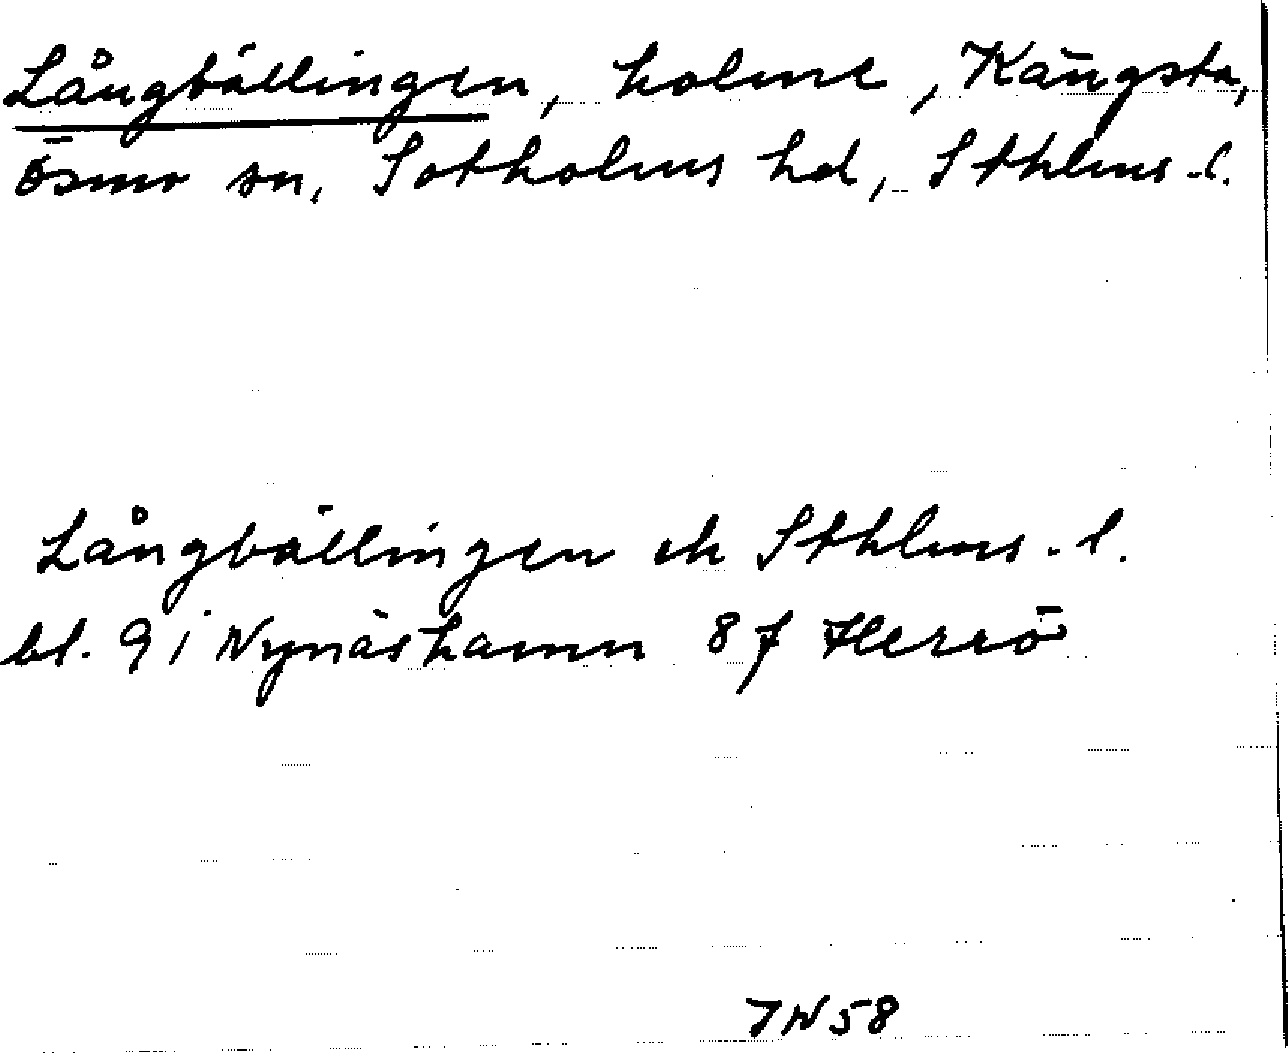 Långbällingen, holme, Kängsta,
Ösmo sn, Sotholms hd, Sthlms-l.
Långbällingen ek Sthlms-l.
bl. 9 i Nynäshamn 8 f Herrö
IN 58